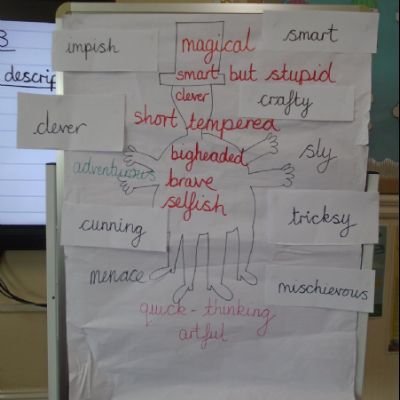 3
descrip
impish
magical
smart
smart but stupid
clever
crafty
short tempered
clever
bigheaded
sly
adventurous
brave
selfish
cunning
tricksy
menace
mischievous
quick-thinking
artful